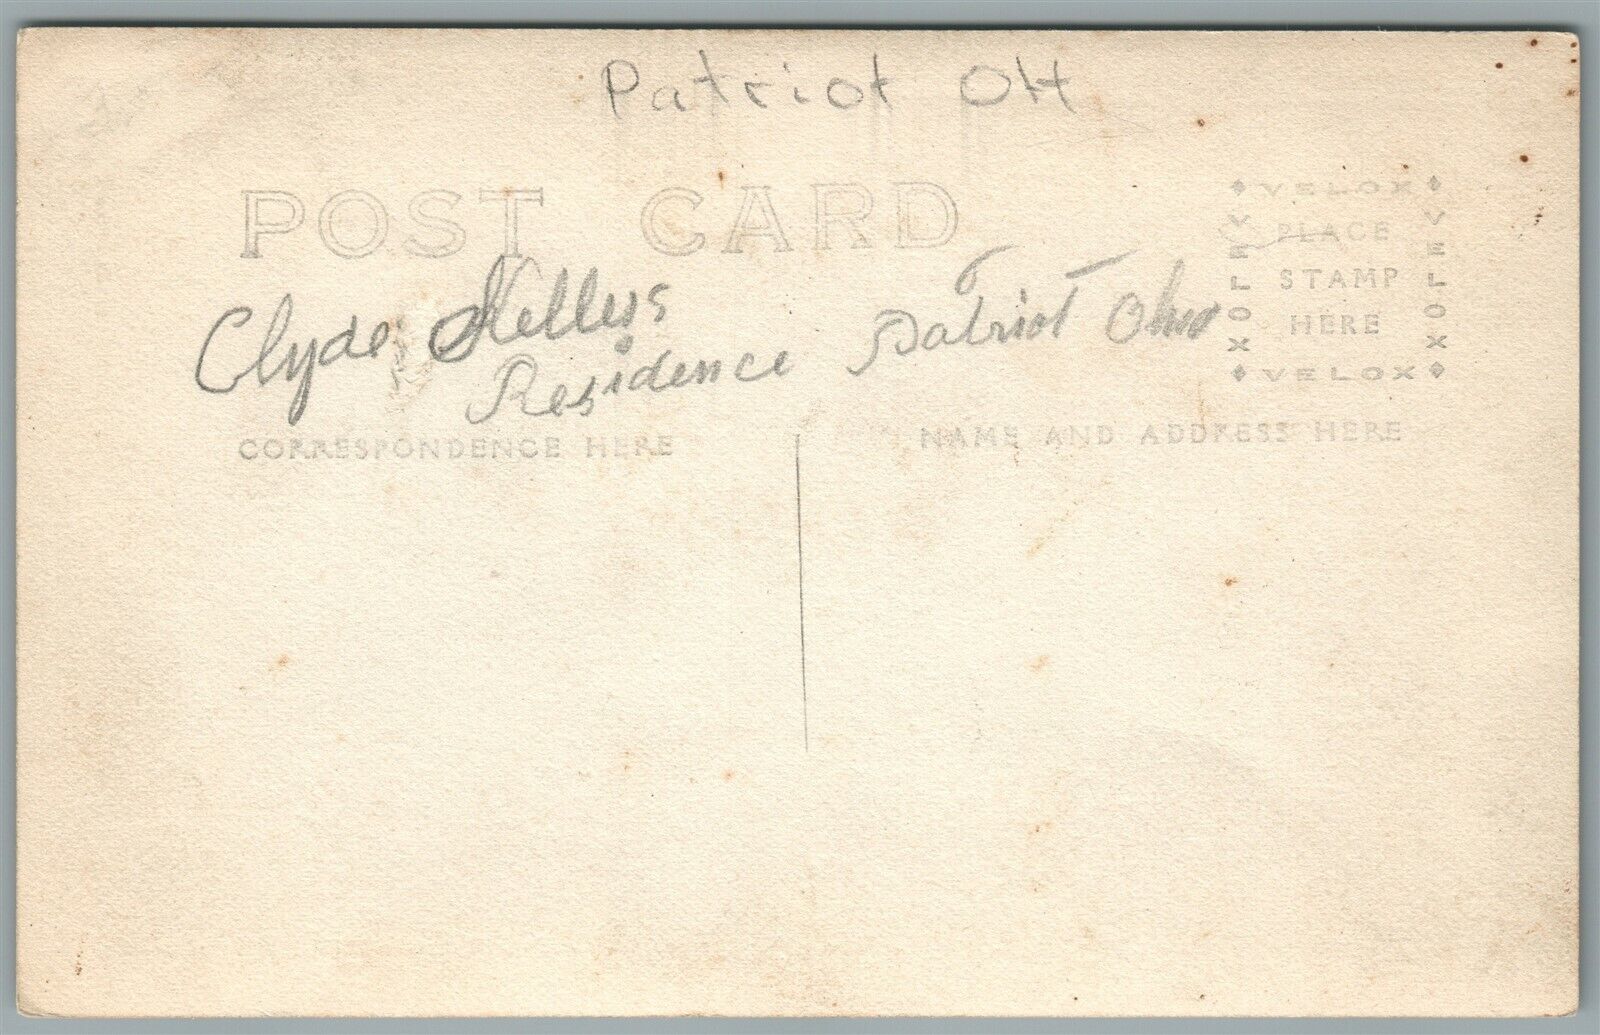 Patriot OH
POST CARD
VELOX
VELOX
VELOX
VELOX
PLACE
STAMP
HERE
Clyde Kellers
Residence Patriot Ohio
CORRESPONDENCE HERE
NAME AND ADDRESS HERE